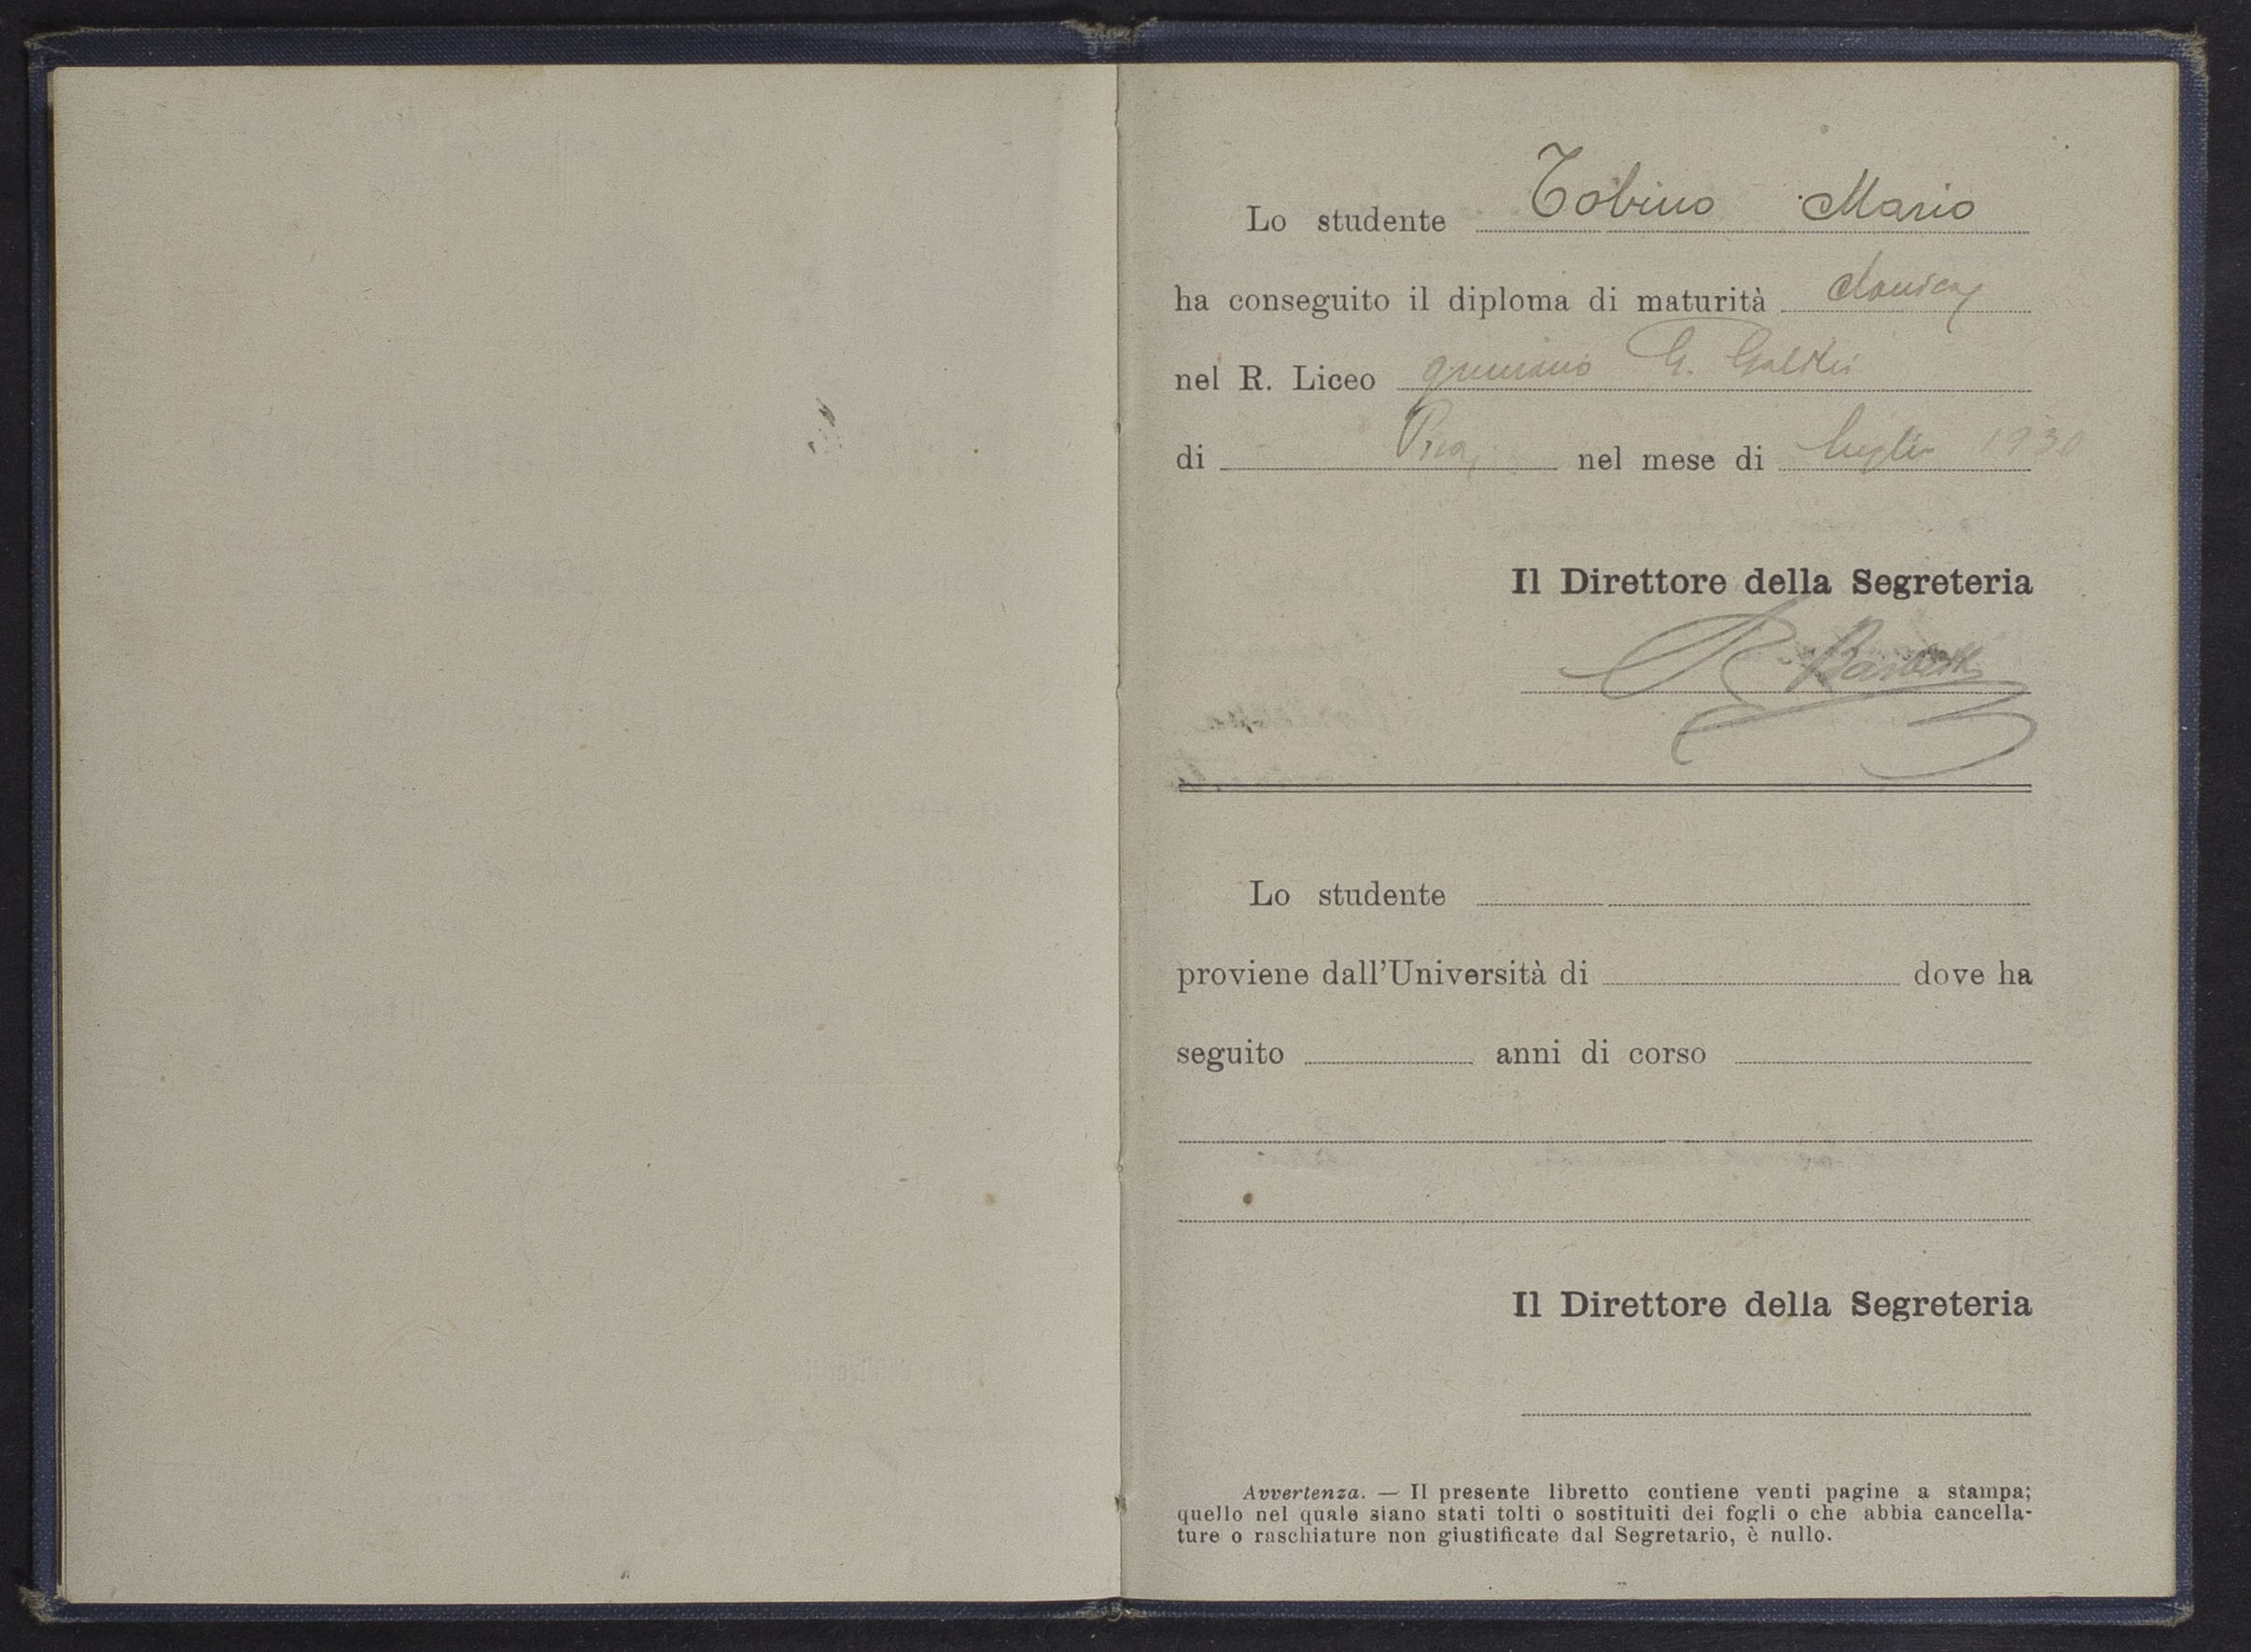 Lo studente Tobino Mario
ha conseguito il diploma di maturità classica
nel R. Liceo ginnasio G. Galilei
di Pisa nel mese di luglio 1930
Il Direttore della Segreteria
R. Barbetti
Lo studente
proviene dall'Università di dove ha
seguito anni di corso
Il Direttore della Segreteria
Avvertenza. — Il presente libretto contiene venti pagine a stampa;
quello nel quale siano stati tolti o sostituiti dei fogli o che abbia cancella-
ture o raschiature non giustificate dal Segretario, è nullo.